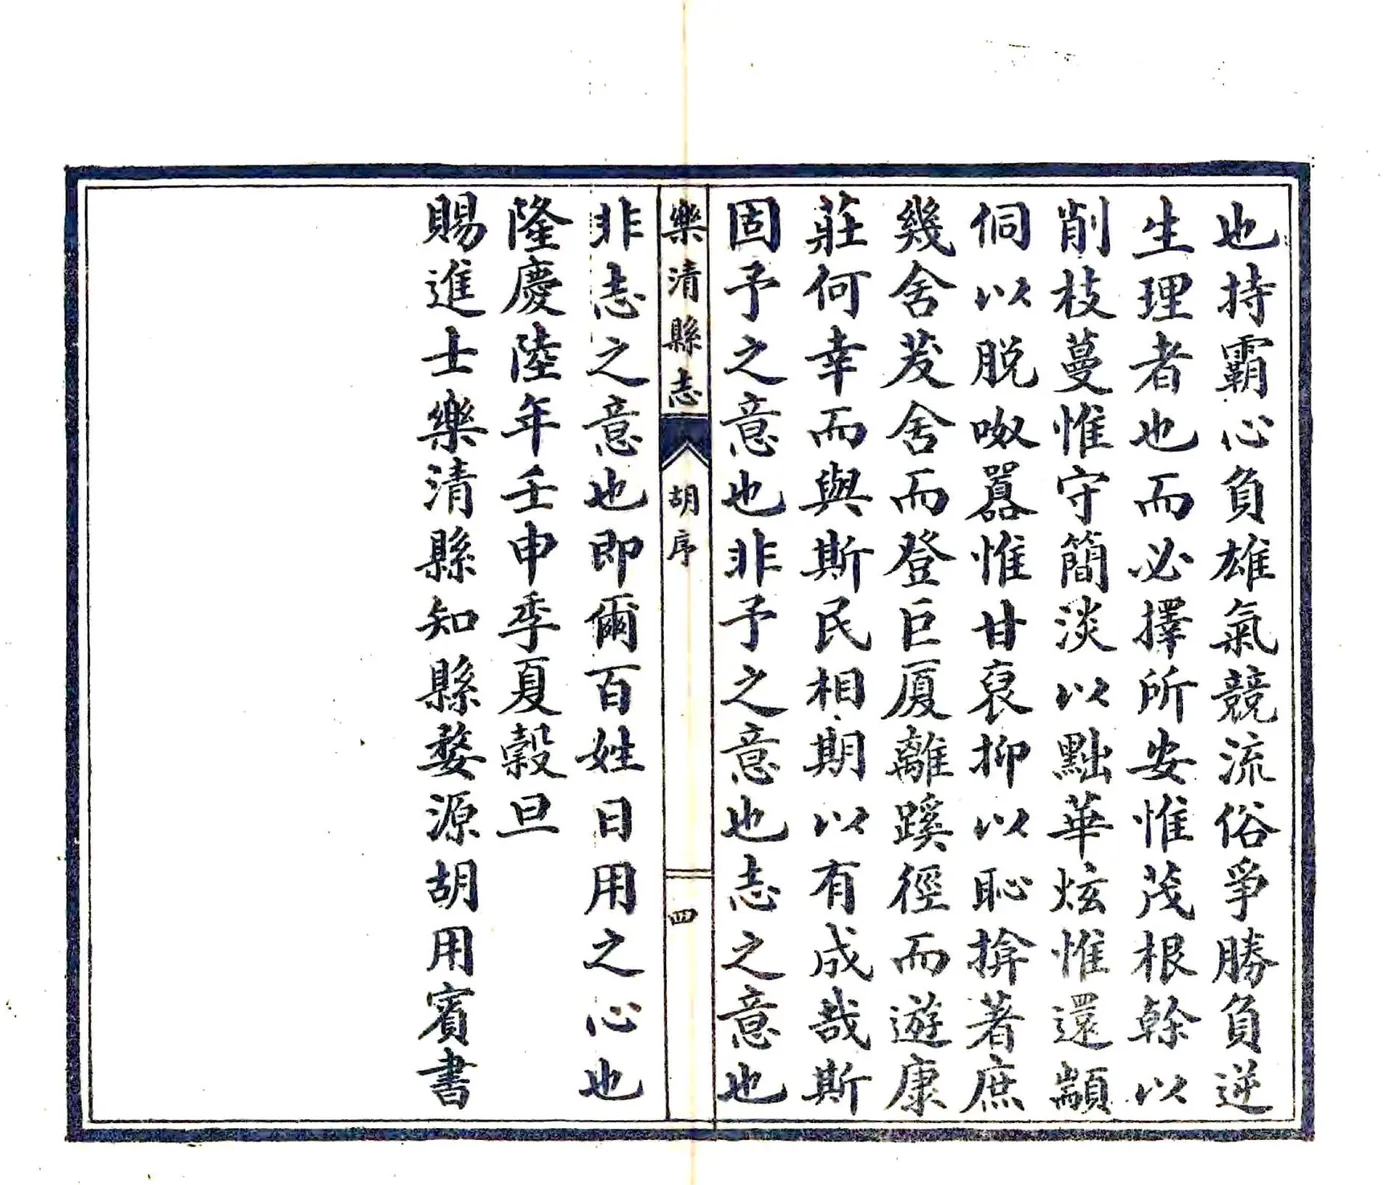 也持霸心負雄氣競流俗爭勝負逆
生理者也而必擇所安惟茂根榦以
削枝蔓惟守簡淡以黜華炫惟還顓
侗以脫呶囂惟甘裒抑以恥揜著庶
幾舍茇舍而登巨厦離蹊徑而遊康
莊何幸而與斯民相期以有成哉斯
固予之意也非予之意也志之意也
樂清縣志
胡序
四
非志之意也即爾百姓日用之心也
隆慶陸年壬申季夏穀旦
賜進士樂清縣知縣婺源胡用賓書